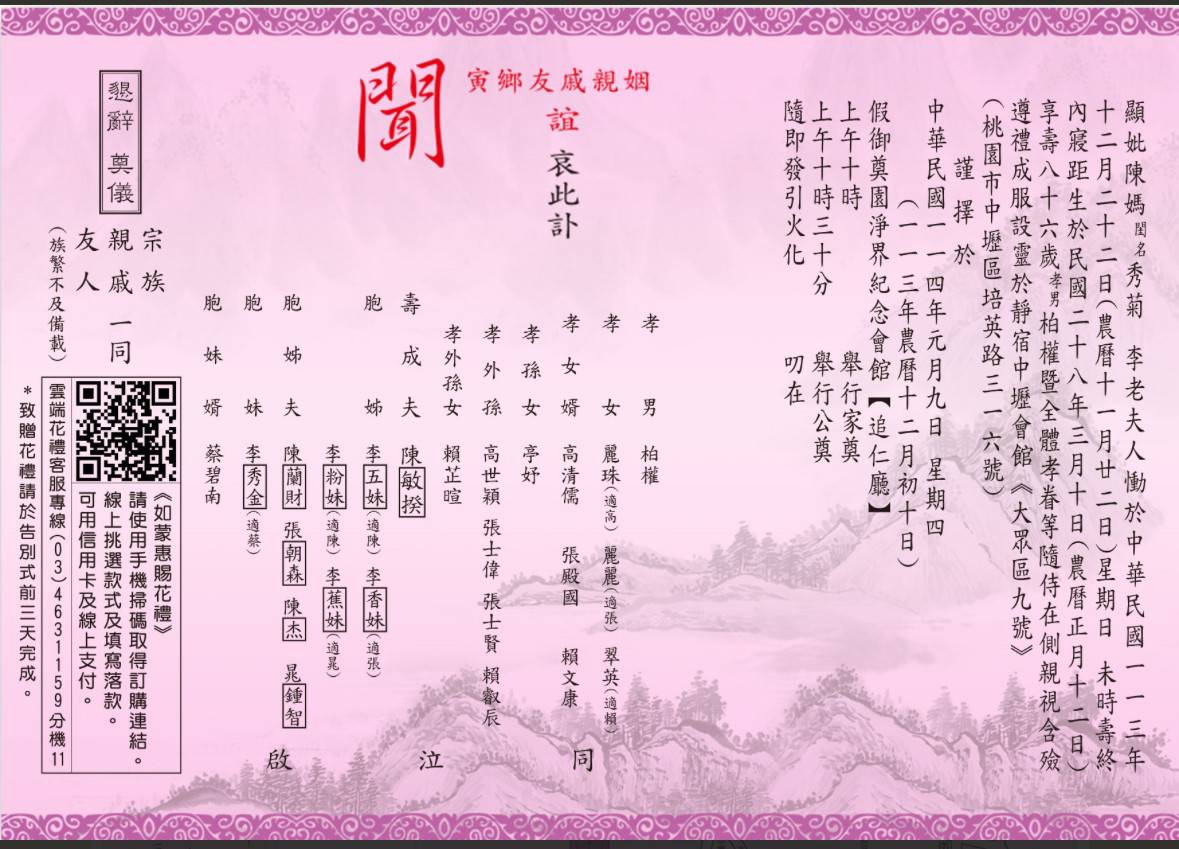 顯妣陳媽閨名秀菊 李老夫人慟於中華民國一一三年
十二月二十二日(農曆十一月廿二日)星期日 未時壽終
內寢距生於民國二十八年三月十日(農曆正月十二日)
享壽八十六歲孝男柏權暨全體孝眷等隨侍在側親視含殮
遵禮成服設靈於靜宿中壢會館《大眾區九號》
(桃園市中壢區培英路三一六號)
謹擇於
中華民國一一四年元月九日 星期四
(一一三年農曆十二月初十日)
假御奠園淨界紀念會館【追仁廳】
上午十時 舉行家奠
上午十時三十分 舉行公奠
隨即發引火化 叨在
寅鄉友戚親姻
誼 哀此訃
聞
孝男 柏權
孝女 麗珠(適高) 麗麗(適張) 翠英(適賴)
孝女婿 高清儒 張殿國 賴文康
孝孫女 亭妤
孝外孫 高世穎 張士偉 張士賢 賴叡辰
孝外孫女 賴芷暄
壽成夫 陳敏揆
胞姊 李五妹(適陳) 李香妹(適張)
李粉妹(適陳) 李蕉妹(適晁)
胞姊夫 陳蘭財 張朝森 陳杰 晁鍾智
胞妹 李秀金(適蔡)
胞妹婿 蔡碧南
同泣啟
懇辭 奠儀
宗族
親戚一同
友人
(族繁不及備載)
《如蒙惠賜花禮》
請使用手機掃碼取得訂購連結。
線上挑選款式及填寫落款。
可用信用卡及線上支付。
雲端花禮客服專線(03)4631159分機11
*致贈花禮請於告別式前三天完成。